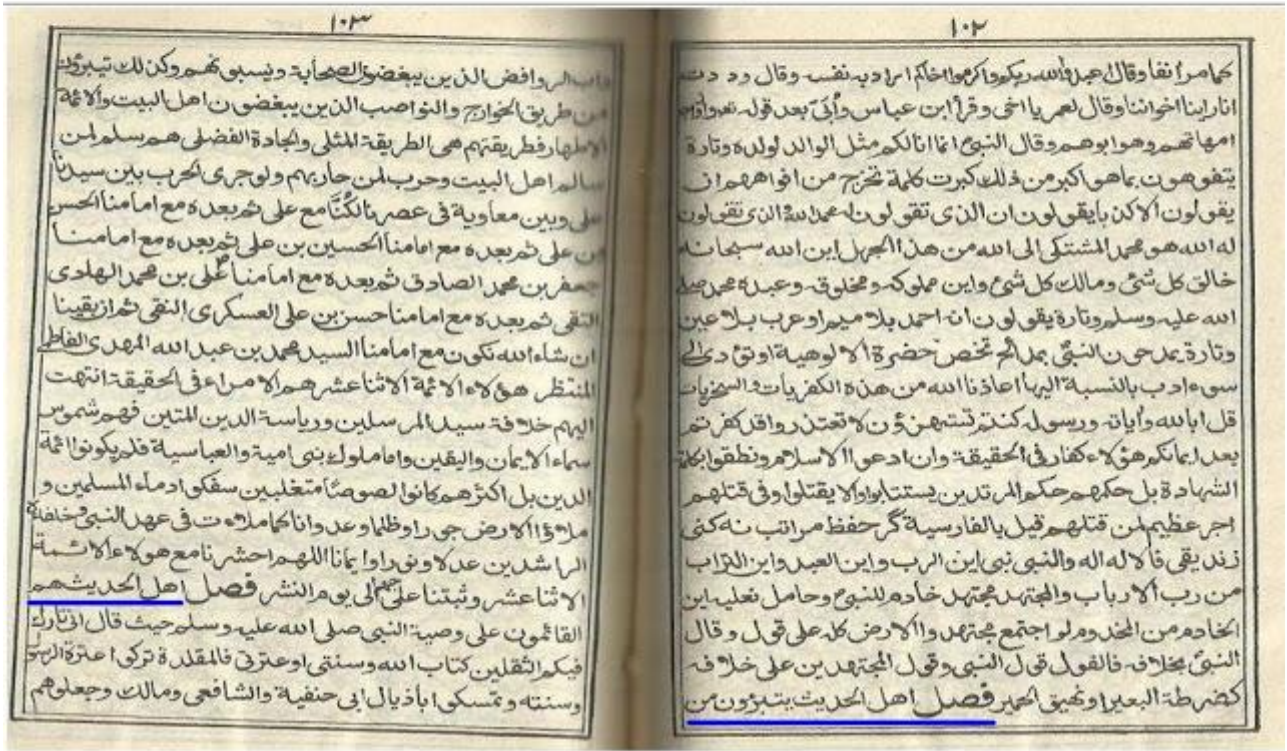 ١٠٢
كما مر أنفا وقال اعبدوا الله ربكم واكرموا اخاكم اراد به نفسه وقال وددت
انا راينا اخواننا وقال لعمر يا اخى وقرأ ابن عباس وأبى بعد قوله
امهاتهم وهو ابوهم وقال النبى انما انا لكم مثل الوالد لولده وتارة
يتفوهون بما هو اكبر من ذلك كبرت كلمة تخرج من افواههم ان
يقولون الا كذبا يقولون ان الذى تقولون له محمد الله الذى تقولون
له الله هو محمد المشتكى الى الله من هذا الجهل اين الله سبحانه
خالق كل شئ ومالك كل شئ واين مملوكه ومخلوقه وعبده محمد صلى
الله عليه وسلم وتارة يقولون انه احمد بلا ميم او عرب بلا عين
وتارة يمدحون النبى بمدائح تخص حضرة الالوهية او تؤدى الى
سوء ادب بالنسبة اليها اعاذنا الله من هذه الكفريات والسخريات
قل ابالله وأياته ورسوله كنتم تستهزؤن لا تعتذروا قد كفرتم
بعد ايمانكم هؤلاء كفار فى الحقيقة وان ادعوا الاسلام ونطقوا بكلمة
الشهادة بل حكمهم حكم المرتدين يستتابوا والا يقتلوا وفى قتلهم
اجر عظيم لمن قتلهم قيل بالفارسية گر حفظ مراتب نه كنى
زنديقى فالاله اله والنبى نبى اين الرب واين العبد واين التراب
من رب الارباب والمجتهد مجتهد خادم للنبى وحامل نعليه اين
الخادم من المخدوم لو اجتمع مجتهدوا الارض كله على قول وقال
النبى بخلافه فالقول قول النبى وقول المجتهدين على خلافه
كضرطة البعير او نهيق الحمير فصل اهل الحديث يتبرؤن من
١٠٣
داب الروافض الذين يبغضون الصحابة ويسبونهم وكذلك تيبرؤن
من طريق الخوارج والنواصب الذين يبغضون اهل البيت والائمة
الاطهار فطريقتهم هى الطريقة المثلى والجادة الفضلى هم سلم لمن
سالم اهل البيت وحرب لمن حاربهم ولو جرى الحرب بين سيدنا
على وبين معاوية فى عصرنا لكنا مع على ثم بعده مع امامنا الحسن
بن على ثم بعده مع امامنا الحسين بن على ثم بعده مع امامنا
جعفر بن محمد الصادق ثم بعده مع امامنا على بن محمد الهادى
النقى ثم بعده مع امامنا حسن بن على العسكرى النقى ثم ان بقينا
ان شاء الله نكون مع امامنا السيد محمد بن عبد الله المهدى الفاطمى
المنتظر هؤلاء الائمة الاثنا عشر هم الامراء فى الحقيقة انتهت
اليهم خلافة سيد المرسلين ورياسة الدين المتين فهم شموس
سماء الايمان واليقين واما ملوك بنى امية والعباسية فلم يكونوا ائمة
الدين بل اكثرهم كانوا لصوصا متغلبين سفكوا دماء المسلمين و
ملاؤا الارض جورا وظلما وعدوانا كما ملاءت فى عهد النبى وخلفائه
الراشدين عدلا ونورا وايمانا اللهم احشرنا مع هولاء الائمة
الاثنا عشر وثبتنا على حبهم الى يوم النشر فصل اهل الحديث هم
القائمون على وصية النبى صلى الله عليه وسلم حيث قال انى تارك
فيكم الثقلين كتاب الله وسنتى او عترتى فالمقلدة تركوا عترة الرسول
وسنته وتمسكوا باذيال ابى حنفية والشافعى ومالك وجعلوهم